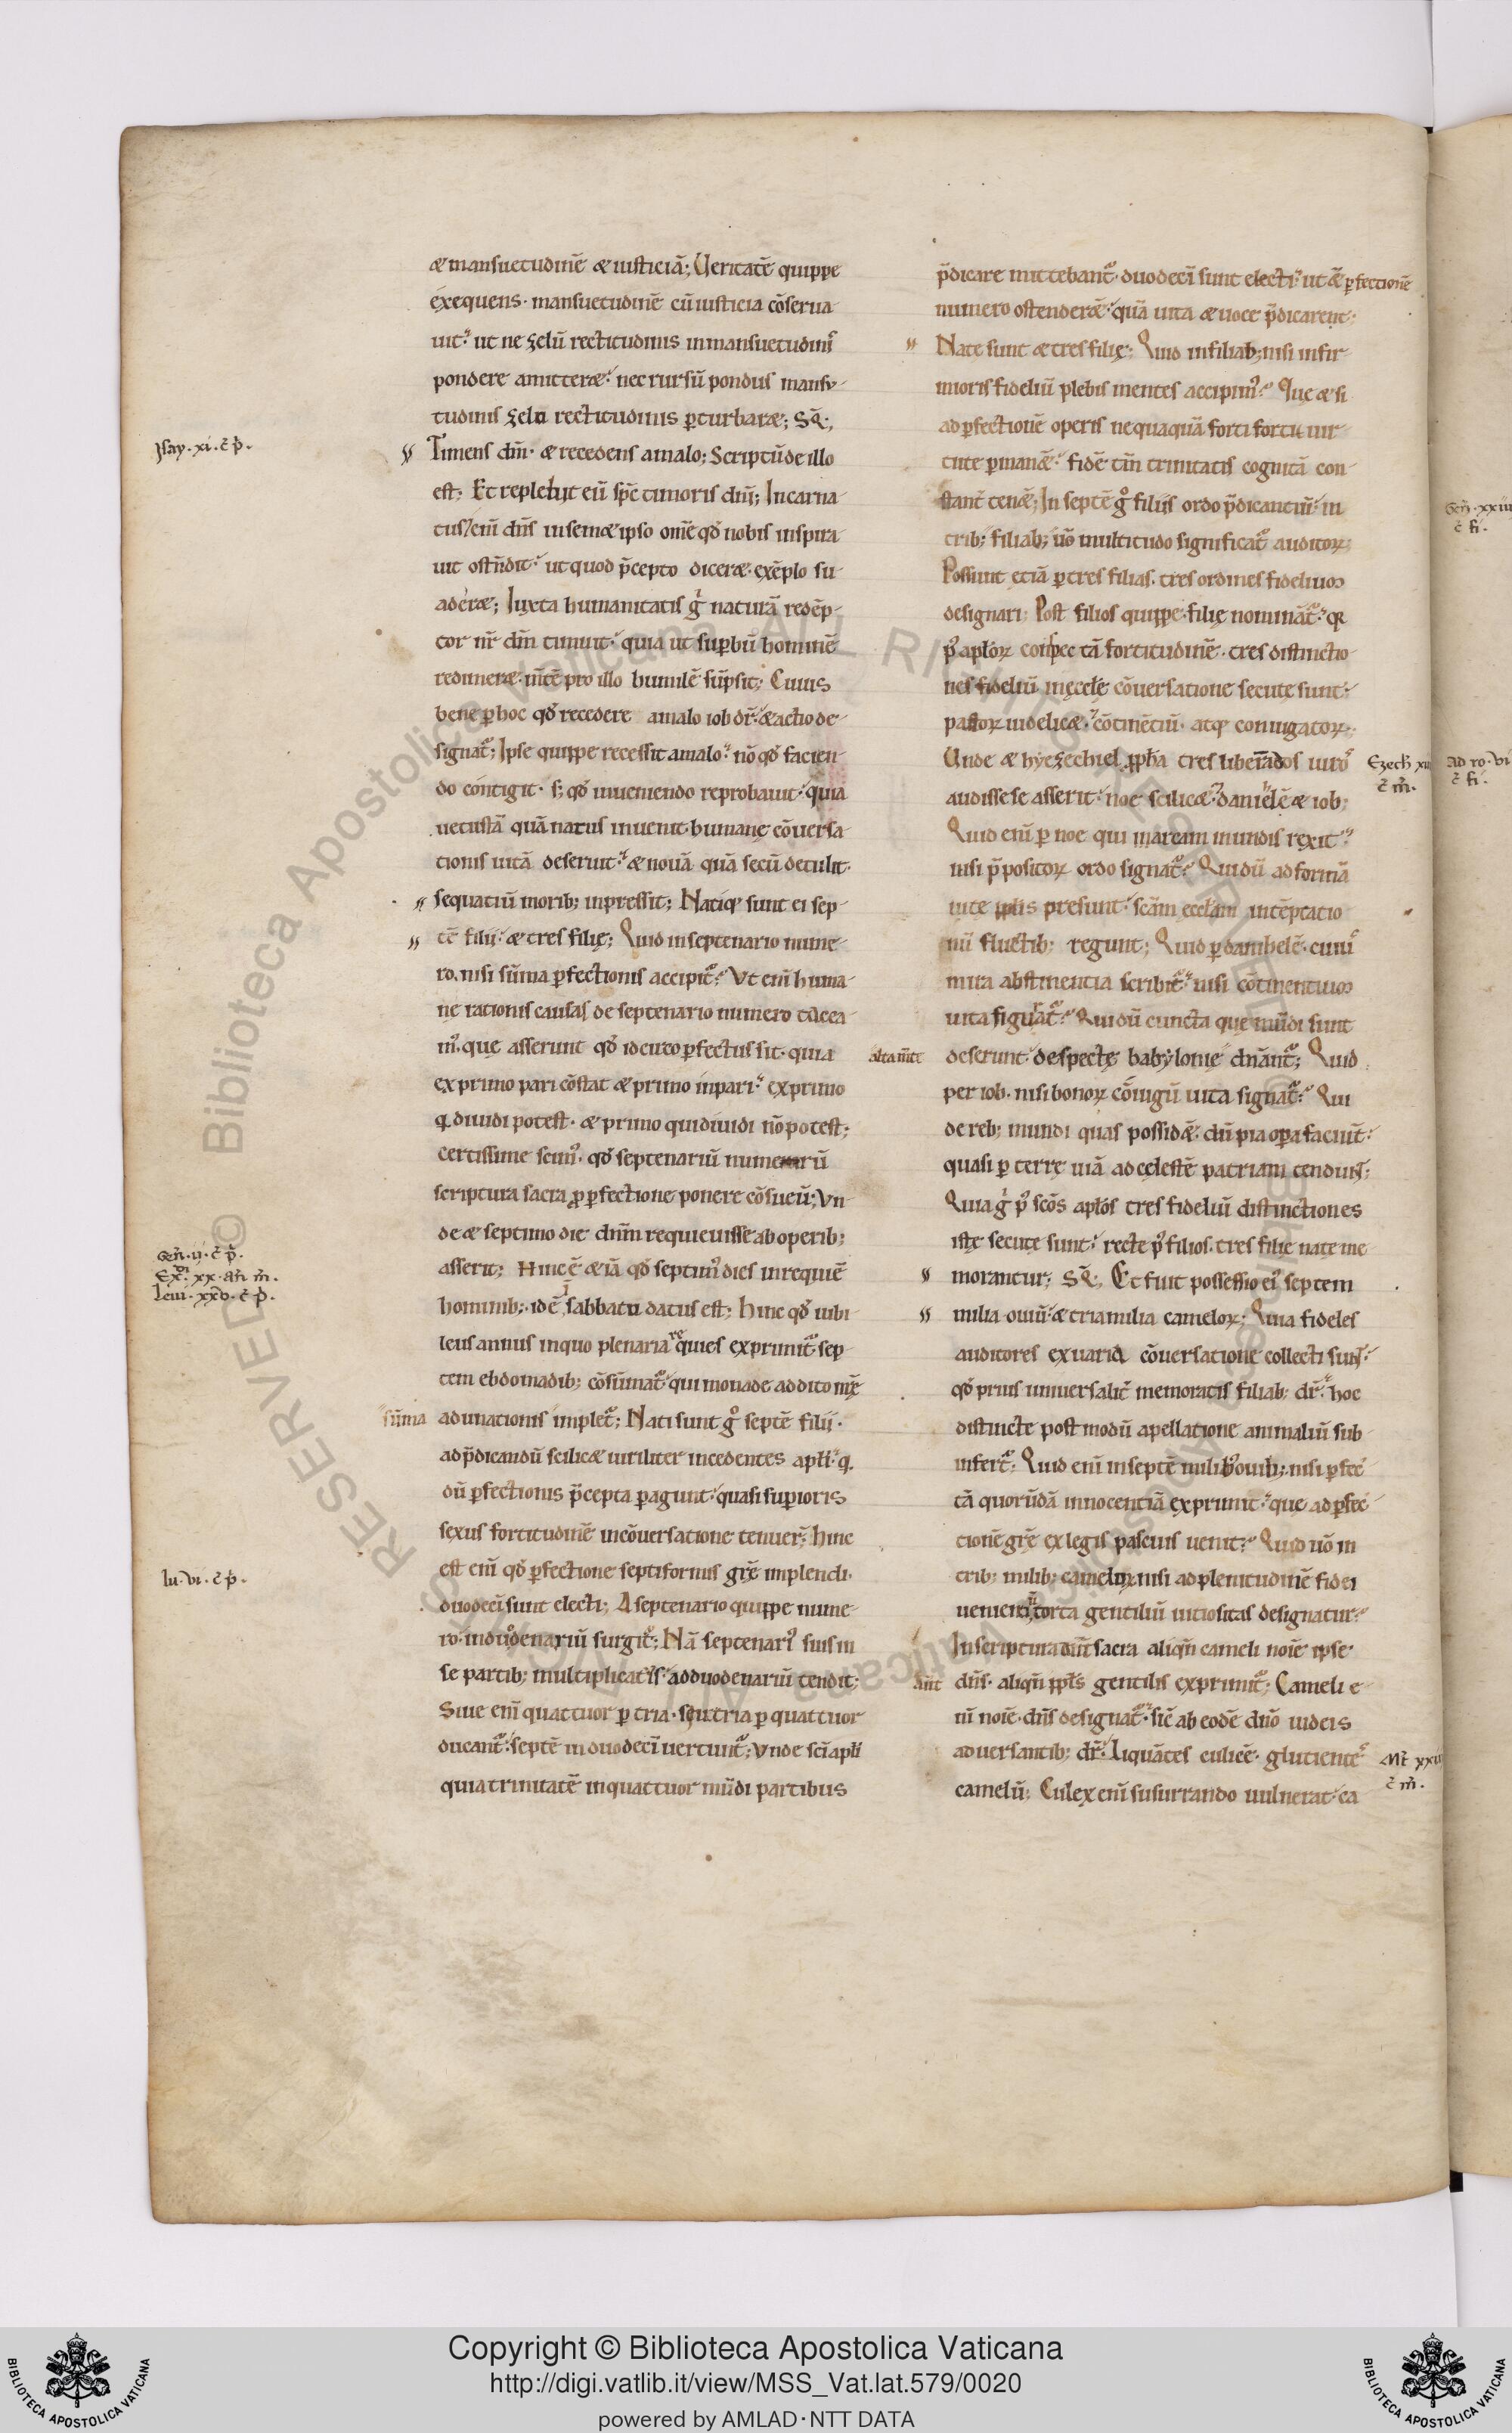 & mansuetudinē & iusticiā; Ueritatē quippe
exequens· mansuetudinē cū iusticia cōserua
uit· ut ne zelū rectitudinis in mansuetudinis
pondere amitter&· nec rursū pondus mansu-
tudinis zelu rectitudinis ꝑturbar&; SQ̄;
Isay· xi· c̄ p̄·
Timens dm̄· & recedens a malo; Scriptū de illo
est; Et repleuit eū sp̄c timoris dn̄i; Incarna-
tus enī dn̄s in sem&ipso om̄e qd̄ nobis inspira
uit ostn̄dit· ut quod p̄cepto dicer& exēplo su-
ader&; Iuxta humanitatis g̊ naturā redēp-
tor nr̄ dm̄ timuit· quia ut suꝑbū hominē
redimer&· m̄tē pro illo humilē sūpsit; Cuius
bene ꝑ hoc qd̄ recedere a malo iob dr̄· & actio de-
signat᷑; Ipse quippe recessit a malo· nō qd̄ facien-
do contigit· s; qd̄ inueniendo reprobauit· quia
uetustā quā natus inuenit humanę cōuersa-
tionis uitā deseruit· & nouā quā secū detulit·
sequatiū morib; inpressit; Natiqꝫ sunt ei sep-
tē filii· & tres filię; Quid in septenario nume-
ro· nisi sūma ꝑfectionis accipit᷑? Vt enī huma-
ne rationis causas de septenario numero tacea
m᷒· que asserunt qd̄ idcirco ꝑfectus sit· quia
ex primo pari cōstat & primo inpari· ex primo
q̄ diuidi potest· & primo qui diuidi nō potest;
certissime scim᷒· qd̄ septenariū numerū
scriptura sacra ꝓ ꝑfectione ponere cōsueū; Vn-
de & septimo die dnm̄ requieuisse ab operib;
Gen̄· ii· c̄ p̄·
Ex̄· xx· an̄ m̄·
Leui· xxv· c̄ p̄·
asserit; Hinc ē &iā qd̄ septim᷒ dies in requiē
hominib;· idē sabbatū datus est; Hinc qd̄ iubi
leus annus in quo plenaria requies exprimit᷑ sep
tem ebdomadib; cōsūmat᷑· qui monade addito nr̄ę
sūma
adunationis implet᷑; Nati sunt g̊ septē filii·
ad p̄dicandū scilic& uiriliter incedentes apl̄i· q̄
dū ꝑfectionis p̄cepta ꝑagunt· quasi suꝑioris
sexus fortitudinē in cōuersatione tenuer̄; Hinc
lu· vi· c̄ p̄·
est enī qd̄ ꝑfectione septiformis gr̄ę implendi·
duodecī sunt electi; A septenario quippe nume-
ro· in duodenariū surgit᷑; Nā septenari᷒ suis in
se partib; multiplicatis· ad duodenariū tendit;
Siue enī quattuor ꝑ tria· seu tria ꝑ quattuor
ducant᷑· septē in duodecī uertunt᷑; Vnde scī apl̄i
quia trinitatē in quattuor mūdi partibus
p̄dicare mittebant᷑· duodecī sunt electi· ut &̄ ꝑfectionē
numero ostender&· quā uita & uoce p̄dicarent;
Nate sunt & tres filię; Quid in filiab; nisi infir-
mioris fideliū plebis mentes accipim᷒? Quę & si
ad ꝑfectionē operis nequaquā forti uir-
tute ꝑman&· fidē tm̄ trinitatis cognitā con-
stant̄ ten&; In septē g̊ filiis ordo p̄dicantiū· in
trib; filiab; uō multitudo significat᷑ auditoꝝ;
Possunt etiā ꝑ tres filias· tres ordines fideliuꝫ
designari; Post filios quippe· filię nominat᷑· qꝛ
p᷒ apl̄oꝝ conspectā fortitudinē· tres distinctio
nes fideliū in ęccle cōuersatione secute sunt·
pastoꝝ uidelic&· cōtinētiū· atqꝫ coniugatoꝝ;
Vnde & hyezechiel ꝓph̄a tres liberādos uiro᷒
Ezech xii
c̄ m̄·
audisse se asserit· noe scilic&· danielē & iob;
Quid enī ꝑ noe qui in aream in undis rexit·
nisi p̄positoꝝ ordo signat᷑? Qui dū ad formā
uite pp̄lis presunt· scām eccl̄am in tēptatio
nū fluctib; regunt; Quid ꝑ danihelē· cuiu᷒
mira abstinentia scribit᷑· nisi cōtinentiuꝫ
uita figurat᷑? Qui dū cuncta que mūdi sunt
alta m̄te
deserunt· despectę babylonie dn̄ant᷑; Quid
per iob· nisi bonoꝝ cōiugū uita signat᷑? Qui
de reb; mundi quas possid&· dū pia oꝑa faciūt·
quasi ꝑ terre uiā ad celestē patriam tendunt;
Quia g̊ p᷒ scōs apl̄os tres fideliū distinctiones
istę secute sunt· recte p᷒ filios· tres filię nate me
morantur; SQ̄; Et fuit possessio ei᷒ septem
milia ouiū· & tria milia cameloꝝ; Quia fideles
auditores ex uaria cōuersatione collecti sunt·
qd̄ prius uniuersalit̄ memoratis filiab; dr̄· hoc
distincte post modū apellatione animaliū sub
infert᷑; Quid enī in septē milib; ouib;· nisi ꝑfec-
tā quorūdā innocentiā exprimit· que ad ꝑfec-
tionē gr̄ę ex legis pascuis uenit? Quid uō in
trib; milib; cameloꝝ nisi ad plenitudinē fidei
ueniens torta gentiliū uitiositas designatur?
In scriptura aūt sacra aliqn̄ cameli noīe ipse
dn̄s· aliqn̄ pp̄ls gentilis exprimit᷑; Cameli e-
nī noīe· dn̄s designat᷑· sic ab eodē dn̄o iudeis
aduersantib; dr̄· Liquātes culicē· glutiente᷒
Mt̄ xxiii
c̄ m̄·
camelū; Culex enī susurrando uulnerat· ca
Gen̄· xxiiii
c̄ fi·
Ad ro· vi
c̄ fi·
© Biblioteca Apostolica Vaticana ALL RIGHTS RESERVED
Copyright © Biblioteca Apostolica Vaticana
http://digi.vatlib.it/view/MSS_Vat.lat.579/0020
powered by AMLAD·NTT DATA
BIBLIOTECA APOSTOLICA VATICANA
BIBLIOTECA APOSTOLICA VATICANA